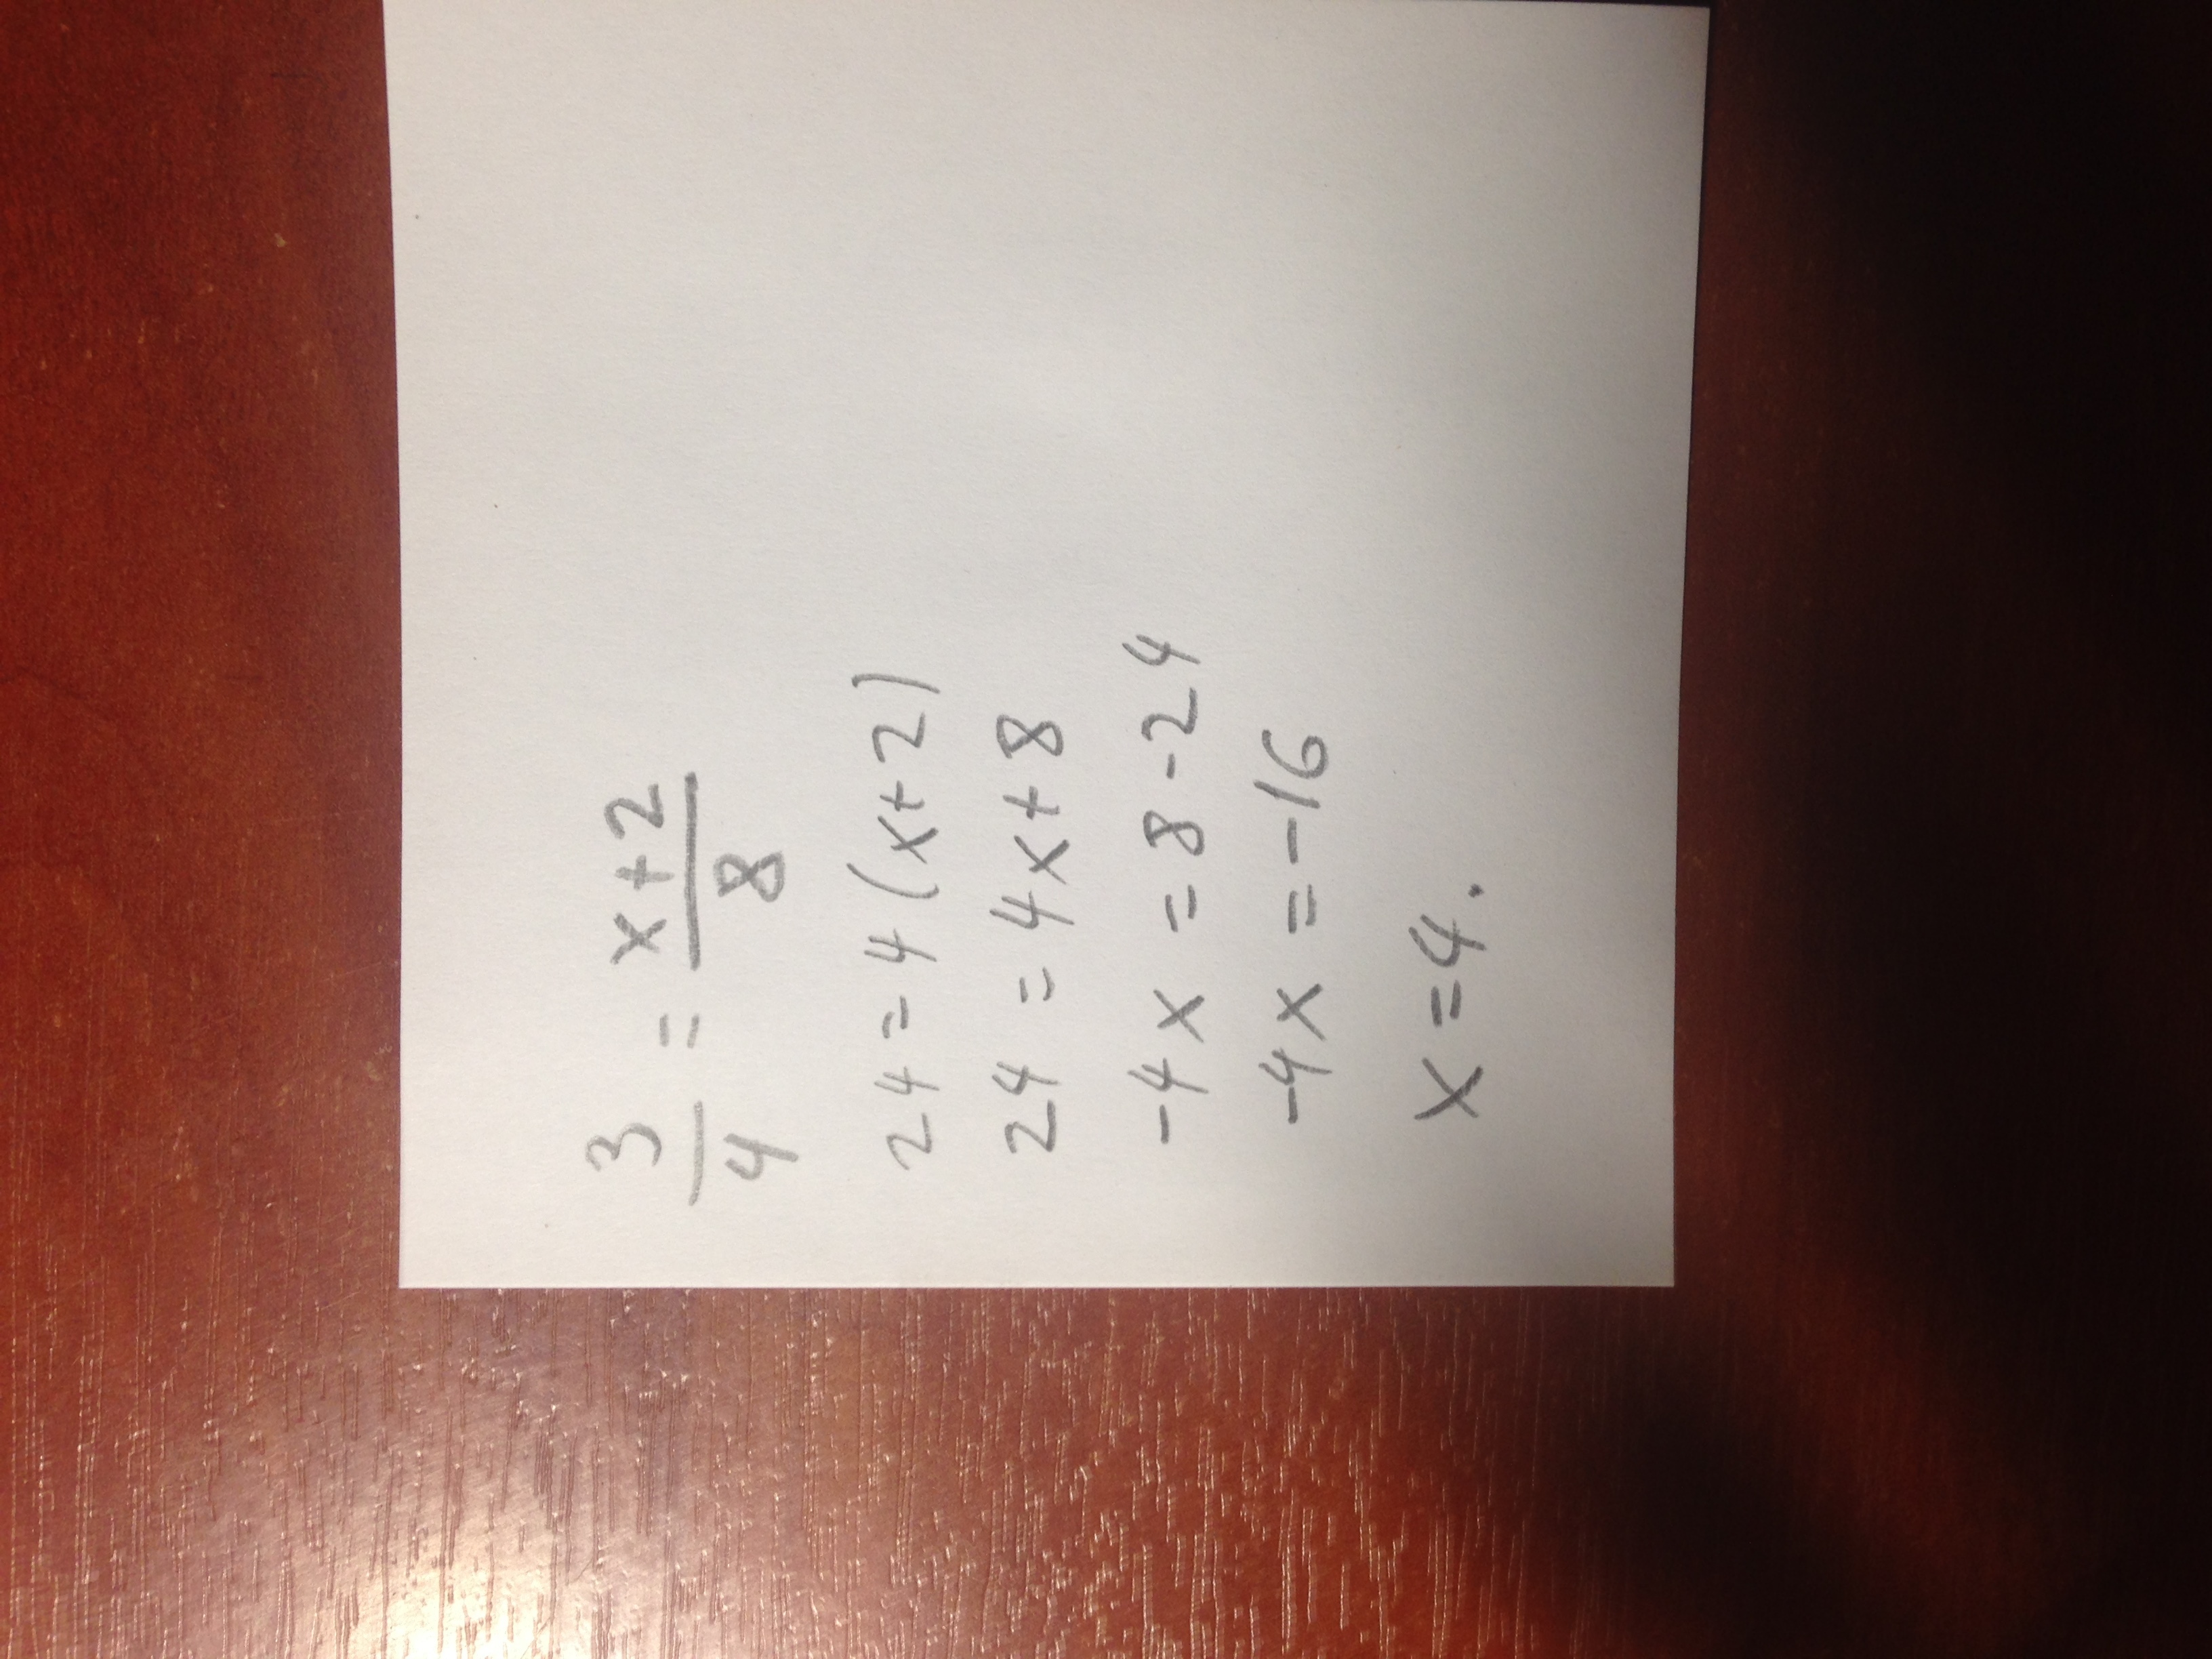 3/4 = x+2/8
24=4(x+2)
24 = 4x+8
-4x = 8-24
-4x = -16
x=4.